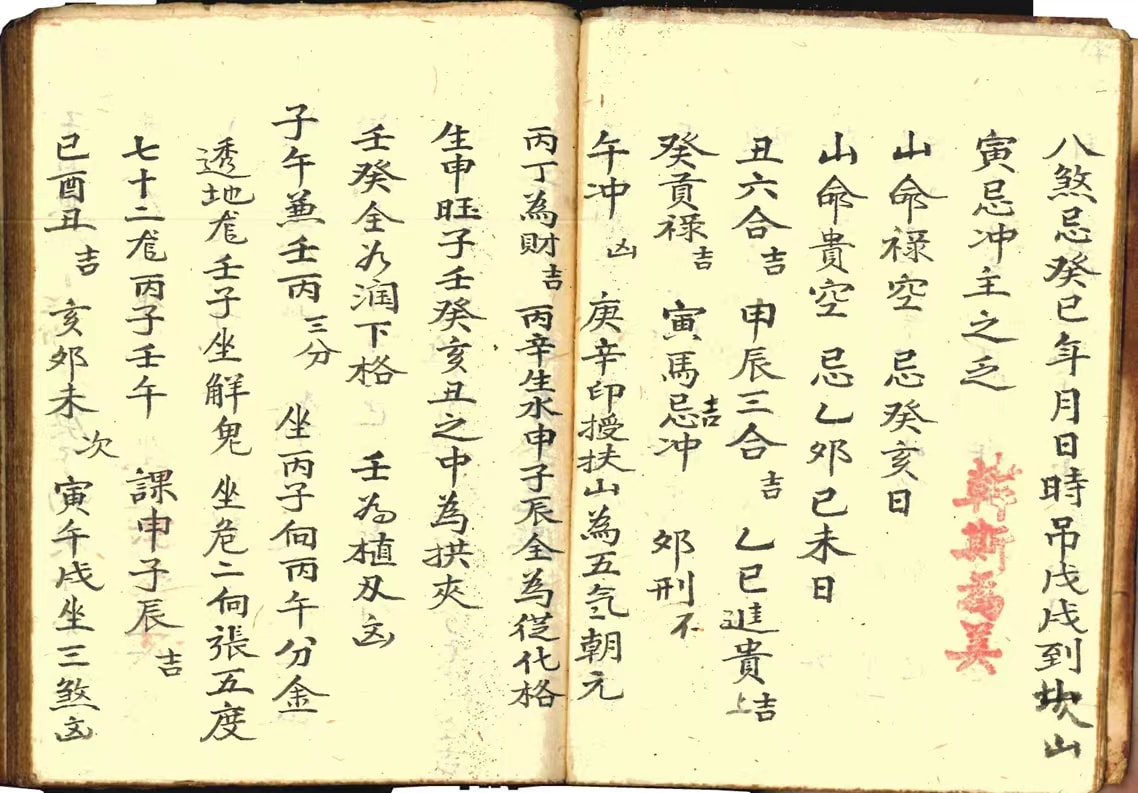 八煞忌癸巳年月日時吊戊戌到坎山
寅忌冲主之乏
斯為美
山命禄空 忌癸亥日
山命貴空 忌乙卯己未日
丑六合吉 申辰三合吉 乙巳進貴上吉
癸貢禄吉 寅馬忌冲吉 卯刑不
午冲凶 庚辛印授扶山為五气朝元
丙丁為財吉 丙辛生水申子辰全為從化格
生申旺子壬癸亥丑之中為拱夾
壬癸全为润下格 壬為植刃凶
子午兼壬丙三分 坐丙子向丙午分金
透地尨壬子坐解鬼 坐危二向張五度
七十二尨丙子壬午 課申子辰吉
巳酉丑吉 亥卯未次 寅午戌坐三煞凶